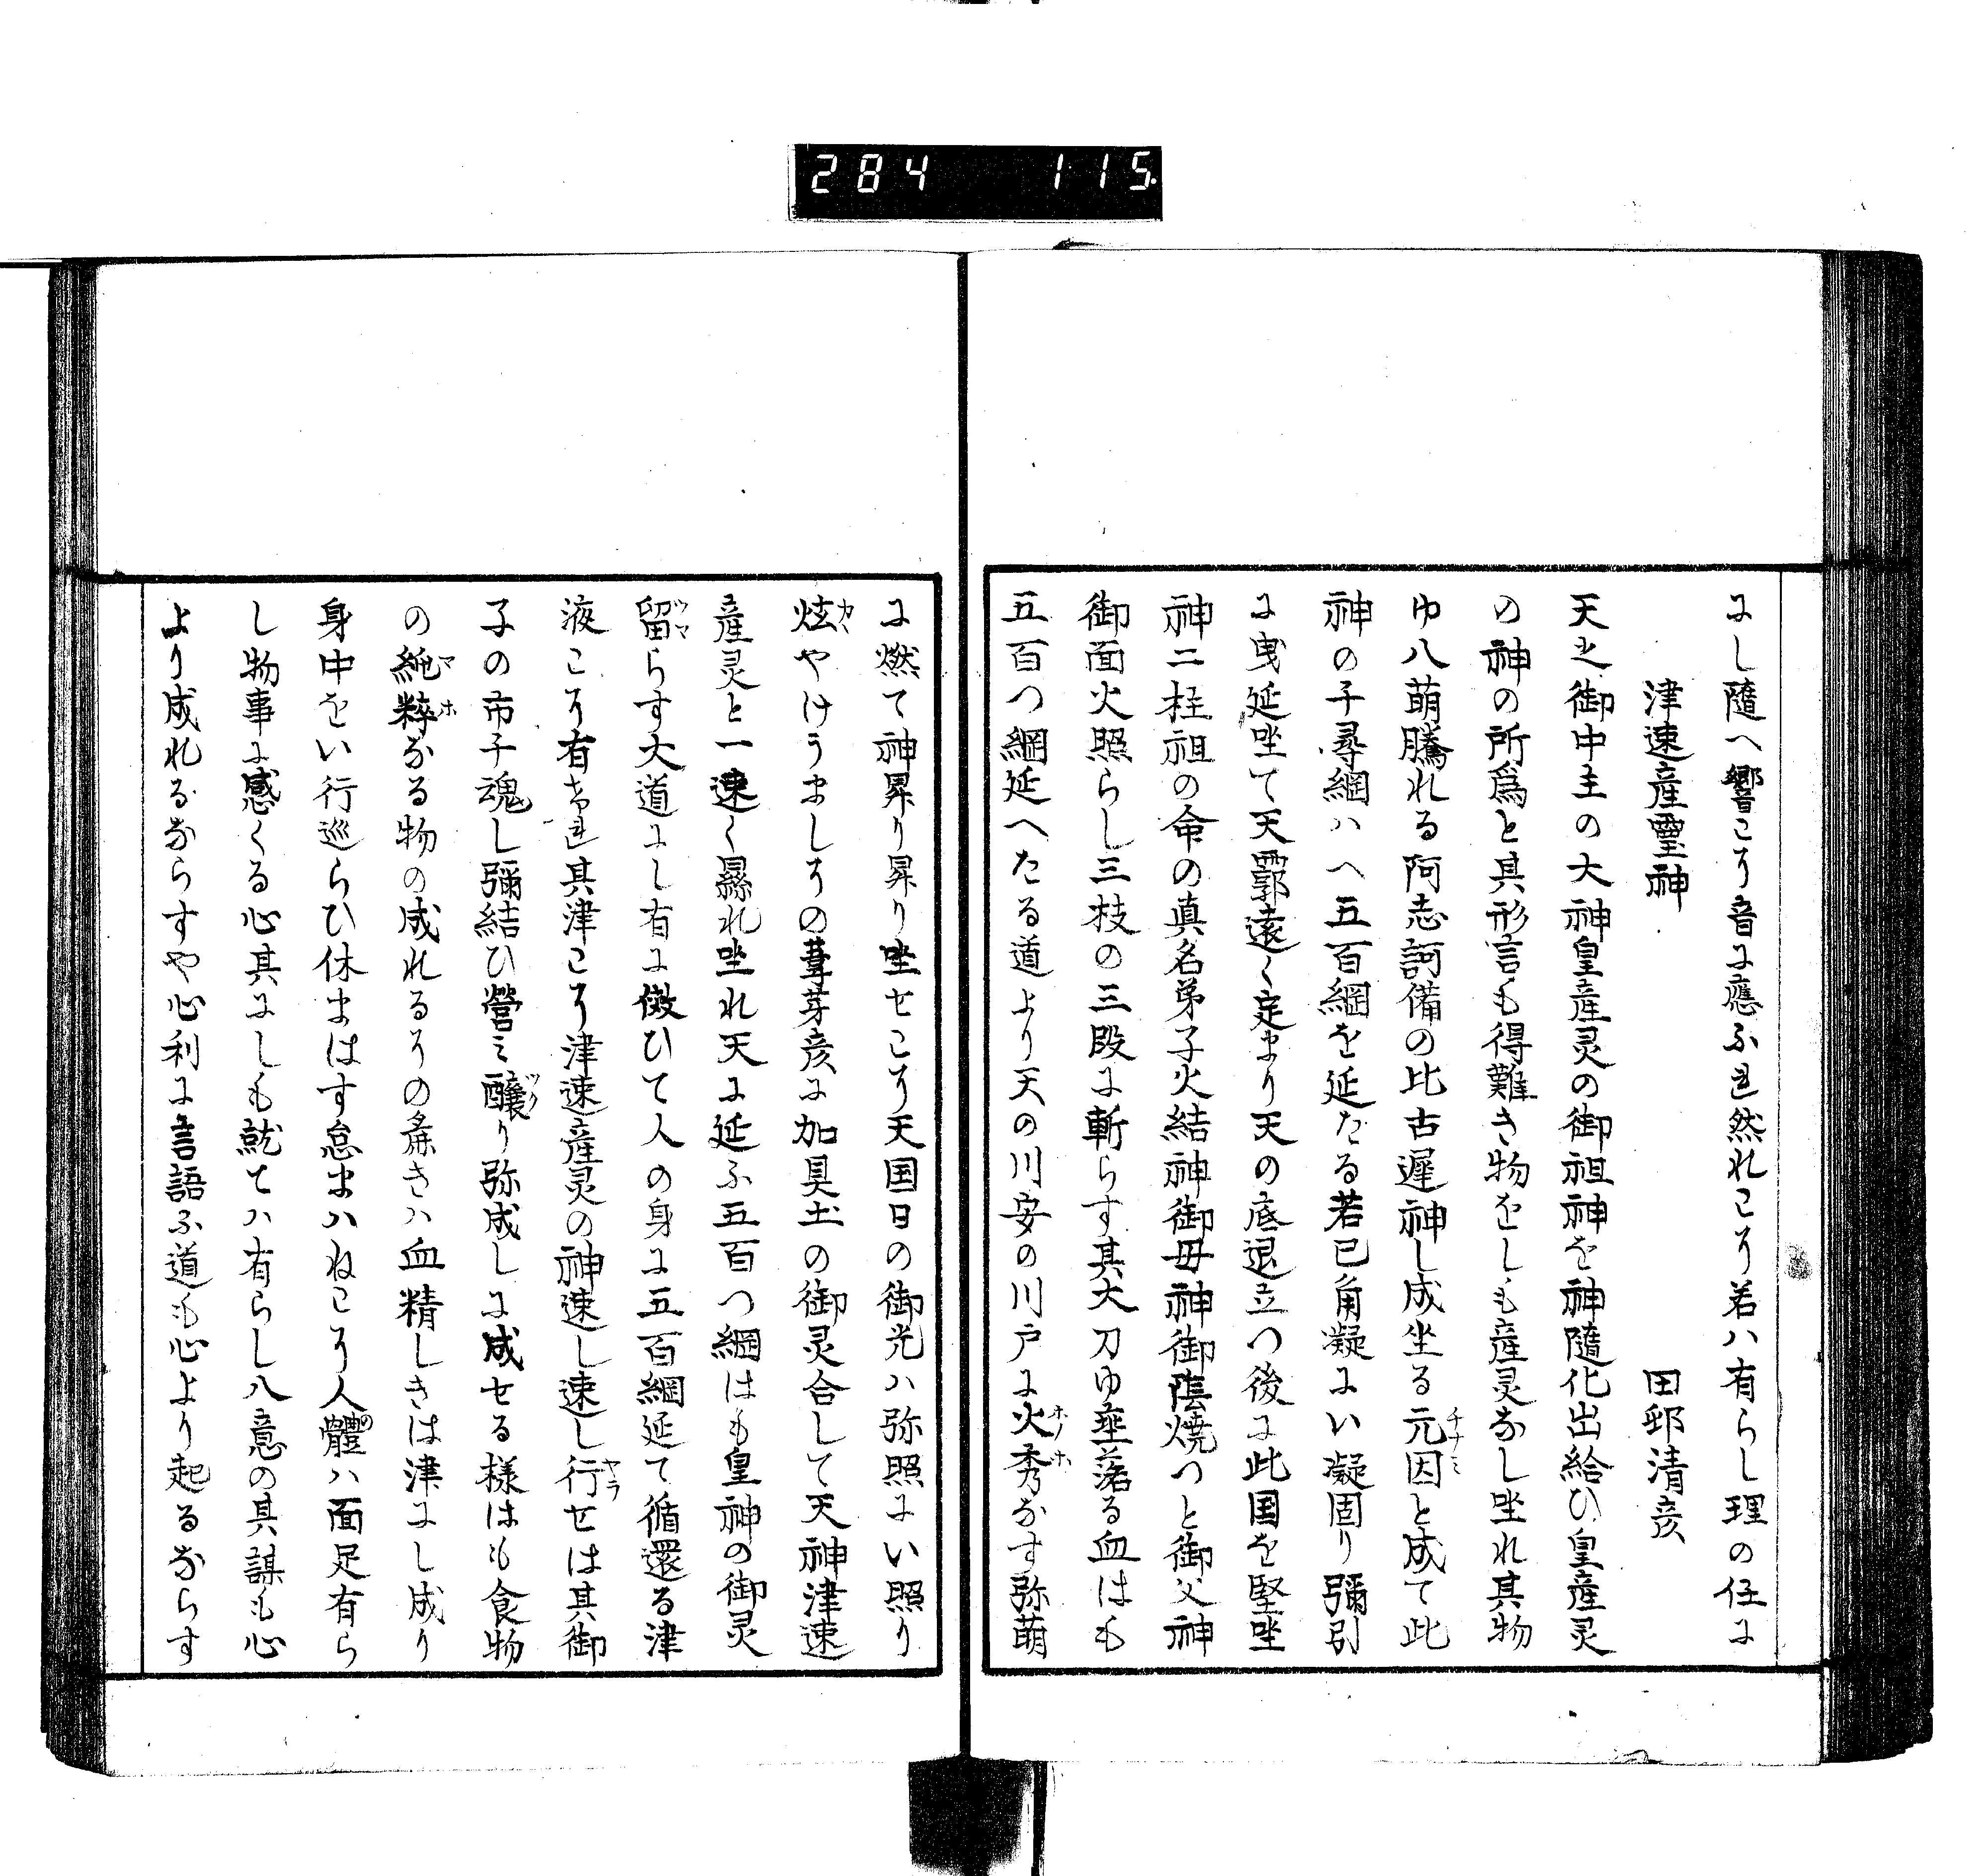 284 115
にし隨へ響こそ音に應ふれ然れこそ若ハ有らし理の任に
津速産靈神 田邨清彦
天之御中主の大神皇産灵の御祖神を神隨化出給ひ皇産灵
の神の所爲と其形言も得難き物をしも産灵なし坐れ其物
ゆ八萌騰れる阿志訶備の比古遲神し成坐る元因と成て此
チナミ
神の子尋綱ハへ五百綱を延たる若已角凝にい凝固り彌引
に曳延坐て天霩遠く定まり天の底退立つ後に此国を堅坐
神二柱祖の命の真名弟子火結神御毋神御蔭焼つと御父神
御面火照らし三枝の三段に斬らす其大刀ゆ埀落る血はも
五百つ綱延へたる道より天の川安の川戸に火秀なす弥萌
ホノホ
に燃て神昇り昇り坐せこそ天国日の御光ハ弥照にい照り
炫やけうましその葦芽彦に加具土の御灵合して天神津速
カヽ
産灵と一速く顯れ坐れ天に延ふ五百つ綱はも皇神の御灵
留らす大道にし有に倣ひて人の身に五百綱延て循還る津
ツマ
液こそ有けれ其津こそ津速産灵の神速し速し行せは其御
ヤラ
子の市子魂し彌結ひ營ミ釀り弥成しに成せる様はも食物
ツク
の純粹なる物の成れるその粛きハ血精しきは津にし成り
マホ
身中をい行巡らひ休まはす怠まハねこそ人體ハ面足有ら
の
し物事に感くる心其にしも就てハ有らし八意の其謀も心
より成れるならすや心利に言語ふ道も心より起るならす